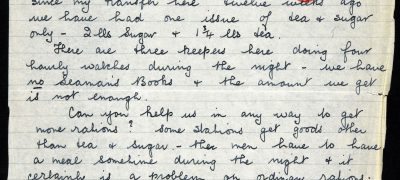 since my transfer here twelve weeks ago
we have had one issue of tea & sugar
only - 2 lbs sugar & 1¾ lbs tea.
There are three keepers here doing four
hourly watches during the night - we have
no Seaman's Books & the amount we get
is not enough.
Can you help us in any way to get
more rations? Some stations get goods other
than tea & sugar - the men have to have
a meal sometime during the night & it
certainly is a problem on ordinary rations.